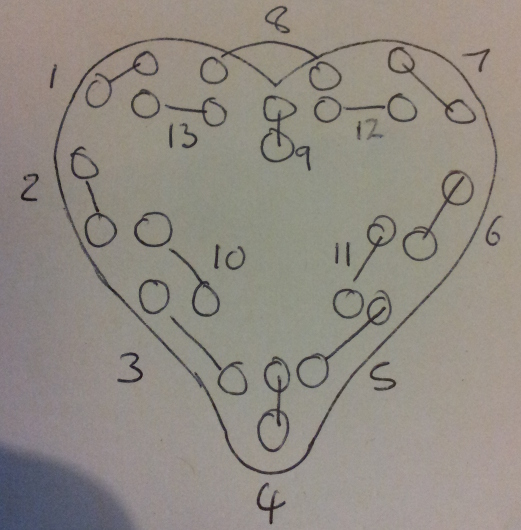 8
1
7
13
12
9
2
6
10
11
3
5
4